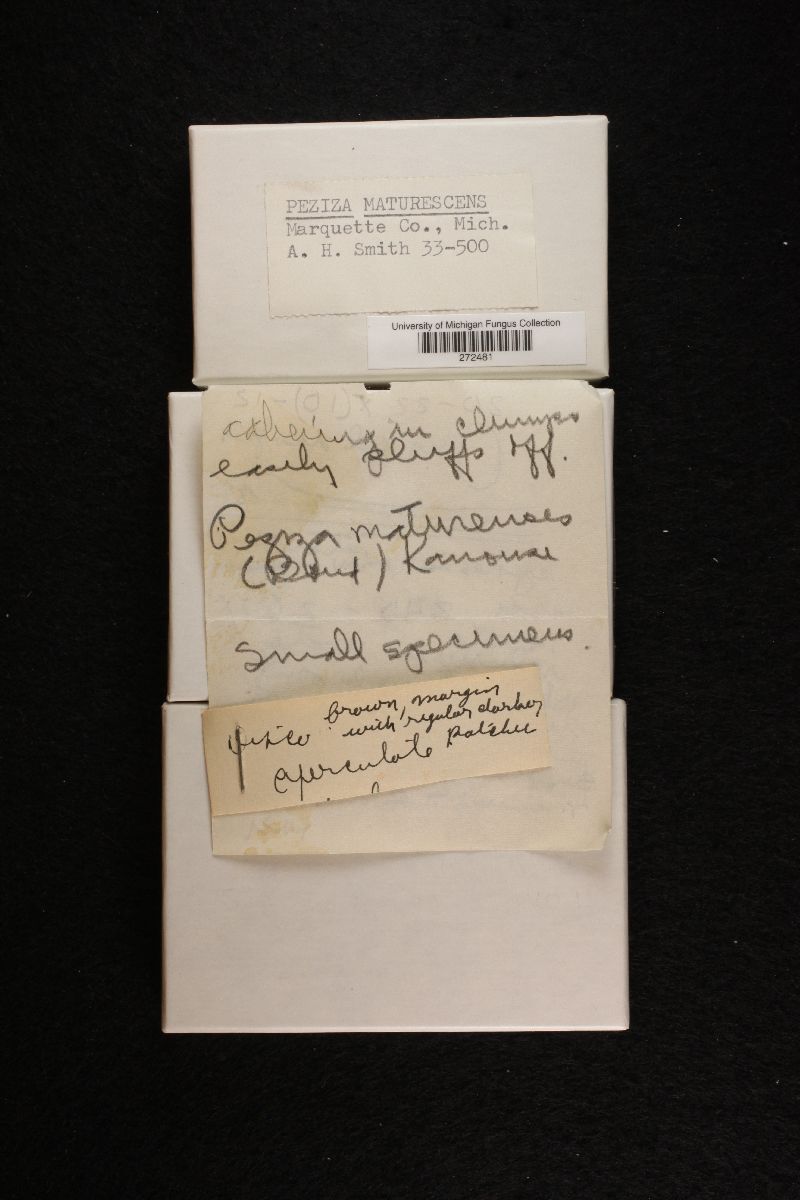 PEZIZA MATURESCENS
Marquette Co., Mich.
A. H. Smith 33-500
University of Michigan Fungus Collection
272481
in clumps
easily sluffs off.
Peziza
( ) Kanouse
Small specimens.
brown, margin
with regular darker
apiculate patches